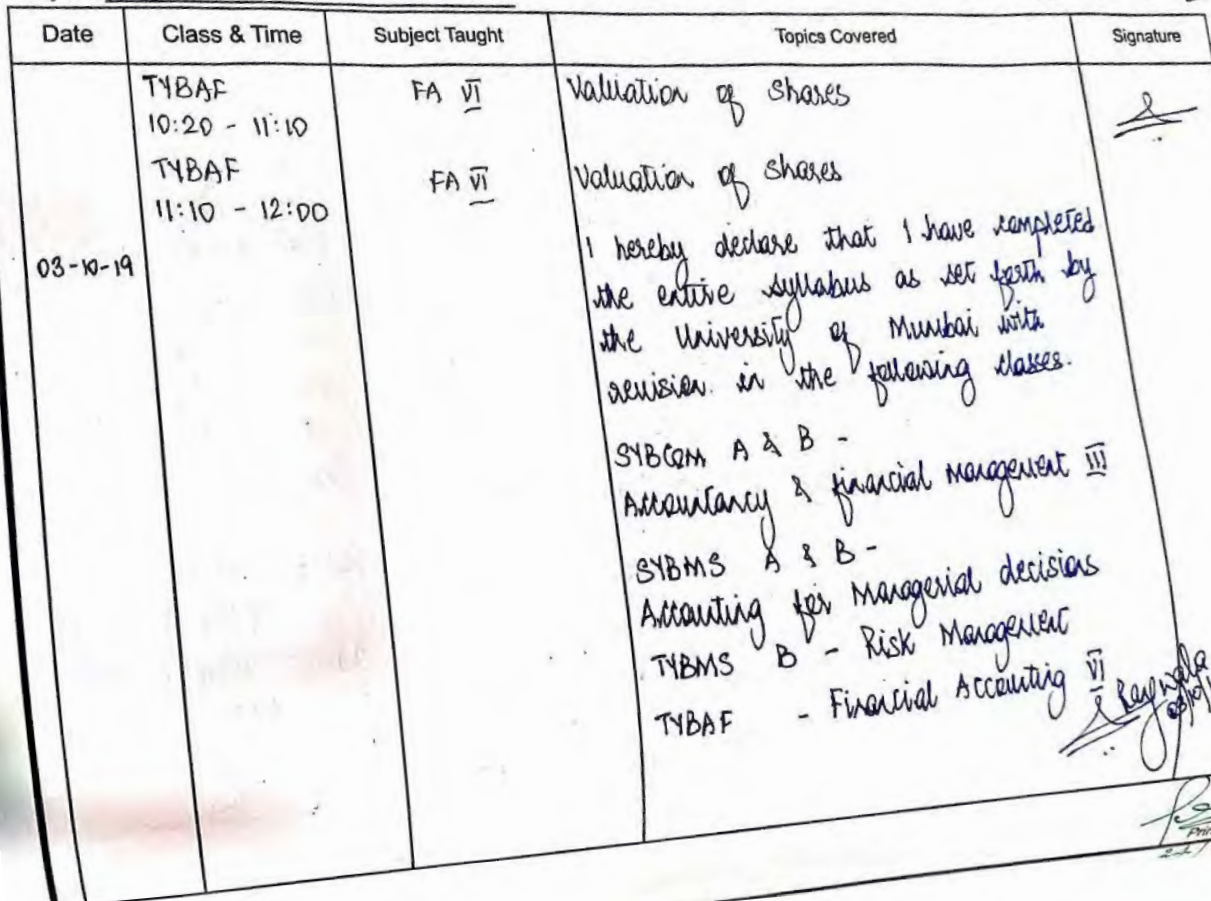 Date Class & Time Subject Taught Topics Covered Signature
TYBAF FA VI Valuation of Shares
10:20 - 11:10
TYBAF FA VI Valuation of Shares
11:10 - 12:00
03-10-19 I hereby declare that I have completed
the entire syllabus as set forth by
the University of Mumbai with
revision. in the following classes.
SYBCOM A & B -
Accountancy & financial Management III
SYBMS A & B -
Accounting for Managerial decisions
TYBMS B - Risk Management
TYBAF - Financial Accounting VI